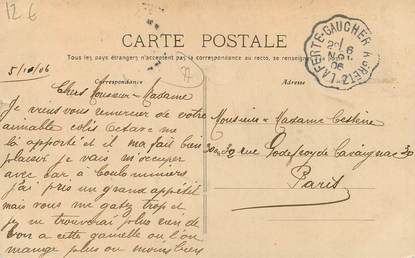 12 €
CARTE POSTALE
Tous les pays étrangers n'acceptent pas la correspondance au recto, se renseigner
LA FERTÉ-GAUCHER A GRETZ
2E
6
NOV.
06
77
5/11/06
Correspondance
Adresse
Chers Monsieur & Madame
Je viens vous remercier de votre
aimable colis Octave me
l'a apporté et il m'a fait bien
plaisir je vais m'occuper
avec car à Coulommiers
j'ai pris un grand appétit
mais vous me gatez trop et
je ne trouverai plus rien de
bon a cette gamelle ou l'on
mange plus ou moins bien
Monsieur & Madame
30 rue Godefroy de Cavaignac 30
Paris